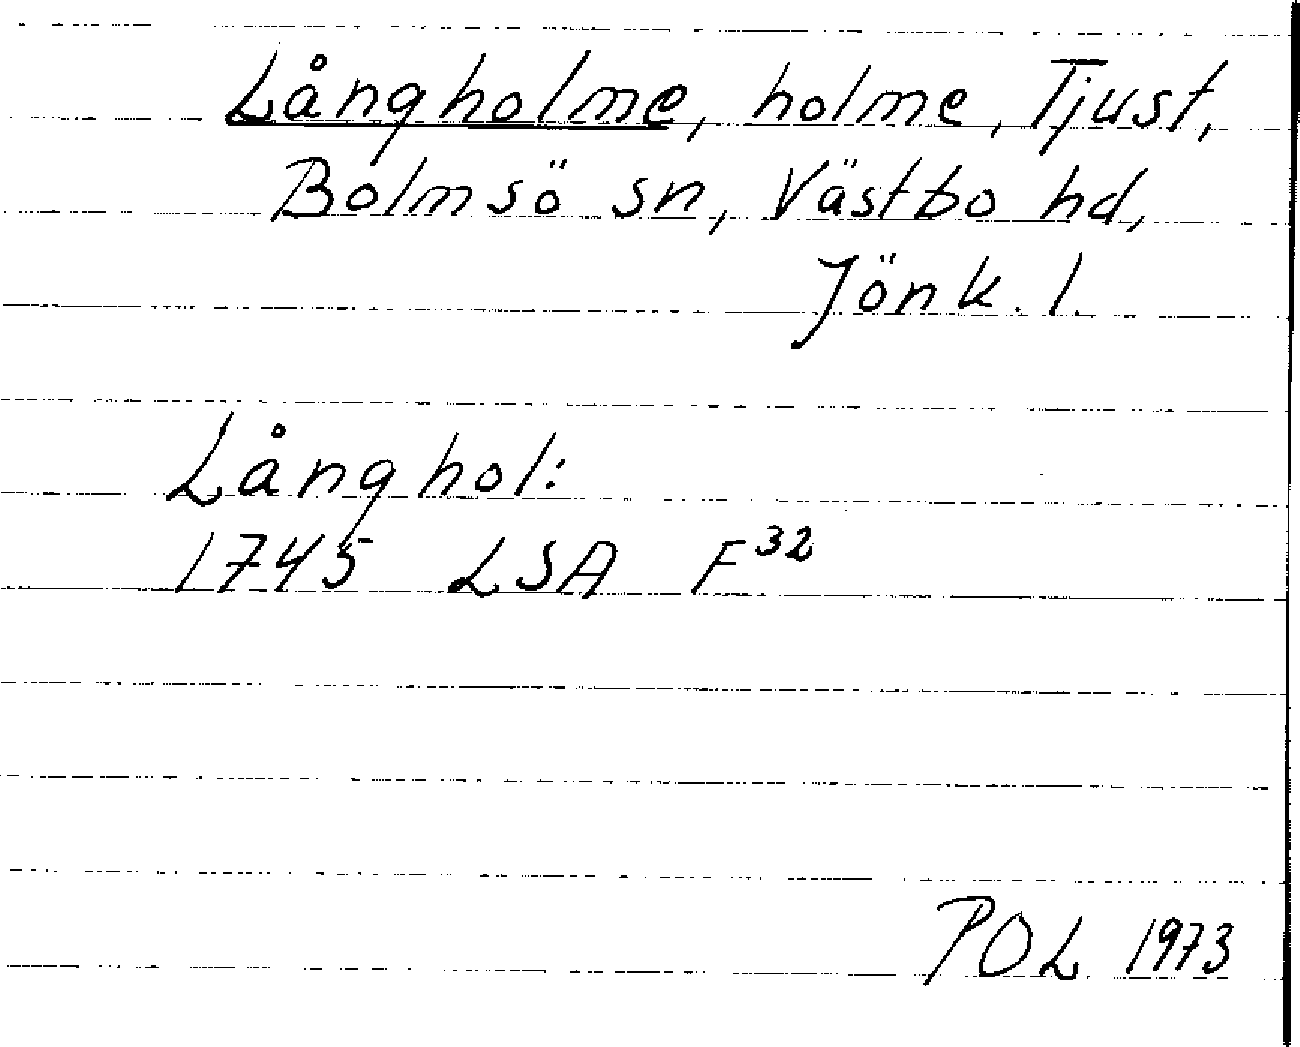 Långholme, holme, Tjust,
Bolmsö sn, Västbo hd,
Jönk. l.
Långhol:
1745 LSA F32
POL 1973